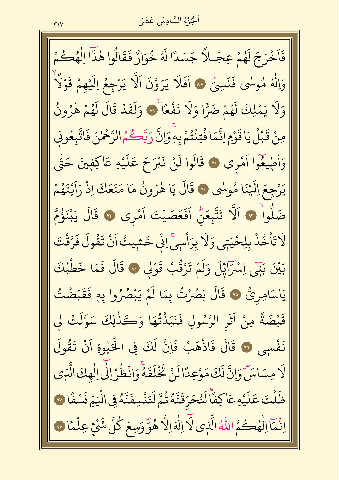 اَلْجُزْءُ السَّادِسُ عَشَرَ
٣١٧
فَاَخْرَجَ لَهُمْ عِجْلاً جَسَدًا لَهُ خُوَارٌ فَقَالُوا هٰذَٓا اِلٰهُكُمْ
وَاِلٰهُ مُوسٰى فَنَسِيَ ۜ ﴿٨٨﴾ اَفَلَا يَرَوْنَ اَلَّا يَرْجِعُ اِلَيْهِمْ قَوْلاً
وَلَا يَمْلِكُ لَهُمْ ضَرًّا وَلَا نَفْعًا ﴿٨٩﴾ وَلَقَدْ قَالَ لَهُمْ هٰرُونُ
مِنْ قَبْلُ يَا قَوْمِ اِنَّمَا فُتِنْتُمْ بِهٖ وَاِنَّ رَبَّكُمُ الرَّحْمٰنُ فَاتَّبِعُونٖي
وَاَطٖيعُٓوا اَمْرٖي ﴿٩٠﴾ قَالُوا لَنْ نَبْرَحَ عَلَيْهِ عَاكِفٖينَ حَتّٰى
يَرْجِعَ اِلَيْنَا مُوسٰى ﴿٩١﴾ قَالَ يَا هٰرُونُ مَا مَنَعَكَ اِذْ رَاَيْتَهُمْ
ضَلُّوا ﴿٩٢﴾ اَلَّا تَتَّبِعَنِ اَفَعَصَيْتَ اَمْرٖي ﴿٩٣﴾ قَالَ يَبْنَؤُمَّ
لَا تَأْخُذْ بِلِحْيَتٖي وَلَا بِرَأْسٖي اِنّٖي خَشٖيتُ اَنْ تَقُولَ فَرَّقْتَ
بَيْنَ بَنٖٓي اِسْرَٓائٖلَ وَلَمْ تَرْقُبْ قَوْلٖي ﴿٩٤﴾ قَالَ فَمَا خَطْبُكَ
يَا سَامِرِيُّ ﴿٩٥﴾ قَالَ بَصُرْتُ بِمَا لَمْ يَبْصُرُوا بِهٖ فَقَبَضْتُ
قَبْضَةً مِنْ اَثَرِ الرَّسُولِ فَنَبَذْتُهَا وَكَذٰلِكَ سَوَّلَتْ لٖي
نَفْسٖي ﴿٩٦﴾ قَالَ فَاذْهَبْ فَاِنَّ لَكَ فِي الْحَيٰوةِ اَنْ تَقُولَ
لَا مِسَاسَ وَاِنَّ لَكَ مَوْعِدًا لَنْ تُخْلَفَهُ وَانْظُرْ اِلٰٓى اِلٰهِكَ الَّذٖي
ظَلْتَ عَلَيْهِ عَاكِفًا لَنُحَرِّقَنَّهُ ثُمَّ لَنَنْسِفَنَّهُ فِي الْيَمِّ نَسْفًا ﴿٩٧﴾
اِنَّمَٓا اِلٰهُكُمُ اللّٰهُ الَّذٖي لَٓا اِلٰهَ اِلَّا هُوَ وَسِعَ كُلَّ شَيْءٍ عِلْمًا ﴿٩٨﴾